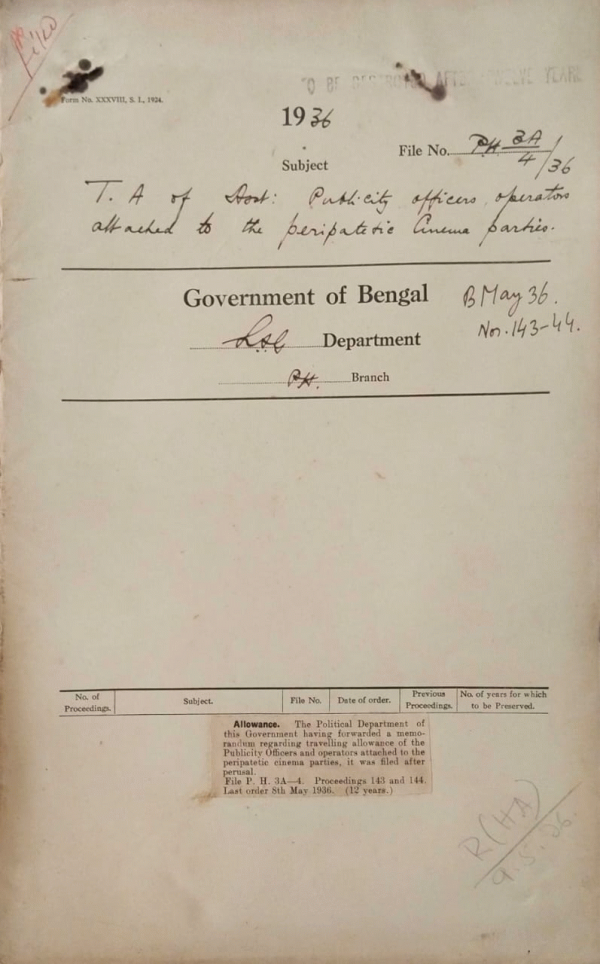 Filed
Form No. XXXVIII, S. I., 1924.
1936
File No. P.H. 3A/4/36
Subject
T. A of Asst: Publicity officers, operators
attached to the peripatetic Cinema parties.
Government of Bengal
B May 36.
Nos. 143-44.
Department
P.H. Branch
No. of Proceedings. Subject. File No. Date of order. Previous Proceedings. No. of years for which to be Preserved.
Allowance. The Political Department of
this Government having forwarded a memo-
randum regarding travelling allowance of the
Publicity Officers and operators attached to the
peripatetic cinema parties, it was filed after
perusal.
File P. H. 3A—4. Proceedings 143 and 144.
Last order 8th May 1936. (12 years.)
R(HA)
9.5.36.